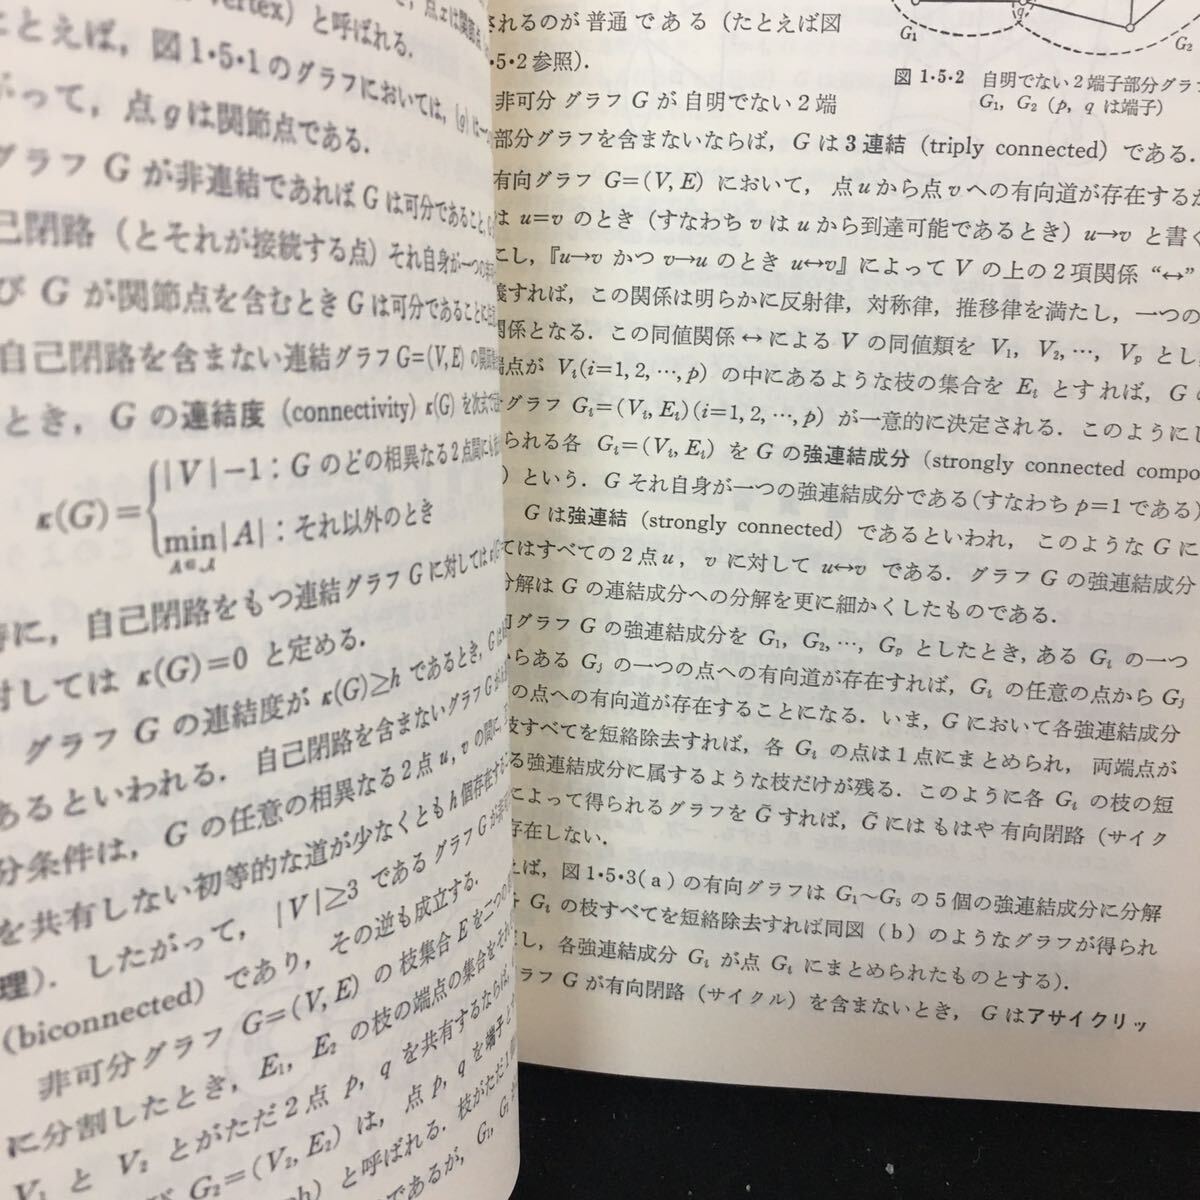 vertex) と呼ばれる.
とえば, 図1・5・1のグラフにおいては, {g} は
って, 点gは関節点である.
グラフ G が非連結であれば G は可分であること,
己閉路 (とそれが接続する点) それ自身が一つの
び G が関節点を含むとき G は可分であることに
自己閉路を含まない連結グラフ G=(V,E) の
とき, G の連結度 (connectivity) κ(G) を次式で
κ(G)={|V|−1: G のどの相異なる2点間にも
min|A|: それ以外のとき
A∈𝒜
に, 自己閉路をもつ連結グラフ G に対しては
対しては κ(G)=0 と定める.
グラフ G の連結度が κ(G)≥h であるとき, G は
あるといわれる. 自己閉路を含まないグラフ G が
分条件は, G の任意の相異なる2点 u, v の間に,
を共有しない初等的な道が少なくとも h 個存在する
理). したがって, |V|≥3 であるグラフ G が
(biconnected) であり, その逆も成立する.
非可分グラフ G=(V, E) の枝集合 E を二つの
に分割したとき, E₁, E₂ の枝の端点の集合をそれ
V₁ と V₂ とがただ2点 p, q を共有するならば,
G₂=(V₂, E₂) は, 点 p, q を端子と
と呼ばれる. 枝がただ1
であるが, G₁,
されるのが普通である (たとえば図
・5・2 参照).
G₁ q G₂
図 1・5・2 自明でない2端子部分グラ
G₁, G₂ (p, q は端子)
非可分グラフ G が自明でない2端
部分グラフを含まないならば, G は3連結 (triply connected) である.
有向グラフ G=(V, E) において, 点uから点vへの有向道が存在するか
は u=v のとき (すなわち v は u から到達可能であるとき) u→v と書く
こし,『u→v かつ v→u のとき u↔v』によって V の上の2項関係 “↔”
義すれば, この関係は明らかに反射律, 対称律, 推移律を満たし, 一つの
関係となる. この同値関係 ↔ による V の同値類を V₁, V₂, …, Vₚ とし
端点が Vᵢ(i=1, 2, …, p) の中にあるような枝の集合を Eᵢ とすれば, G
グラフ Gᵢ=(Vᵢ, Eᵢ)(i=1, 2, …, p) が一意的に決定される. このようにし
られる各 Gᵢ=(Vᵢ, Eᵢ) を G の強連結成分 (strongly connected compo
) という. G それ自身が一つの強連結成分である(すなわち p=1 である)
G は強連結 (strongly connected) であるといわれ, このような G に
てはすべての2点 u, v に対して u↔v である. グラフ G の強連結成分
分解は G の連結成分への分解を更に細かくしたものである.
向グラフ G の強連結成分を G₁, G₂, …, Gₚ としたとき, ある Gᵢ の一つ
からある Gⱼ の一つの点への有向道が存在すれば, Gᵢ の任意の点から Gⱼ
の点への有向道が存在することになる. いま, G において各強連結成分
枝すべてを短絡除去すれば, 各 Gᵢ の点は1点にまとめられ, 両端点が
る強連結成分に属するような枝だけが残る. このように各 Gᵢ の枝の短
によって得られるグラフを G̃ すれば, G̃ にはもはや有向閉路 (サイク
存在しない.
えば, 図1・5・3(a) の有向グラフは G₁~G₅ の5個の強連結成分に分解
各 Gᵢ の枝すべてを短絡除去すれば同図 (b) のようなグラフが得られ
し, 各強連結成分 Gᵢ が点 Gᵢ にまとめられたものとする).
ラフ G が有向閉路 (サイクル) を含まないとき, G はアサイクリッ